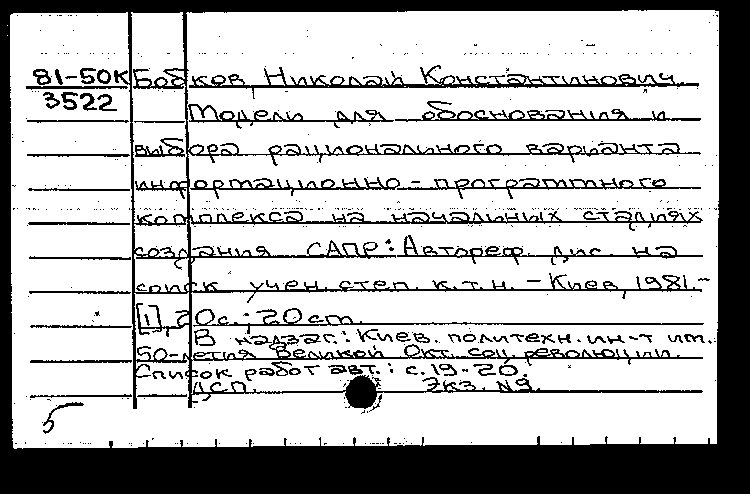 81-50К Бобков, Николай Константинович.
3522 Модели для обоснования и
выбора рационального варианта
информационно-программного
комплекса на начальных стадиях
создания САПР: Автореф. дис. на
соиск. учен. степ. к.т.н. - Киев, 1981.-
[1], 20с.; 20см.
В надзаг.: Киев. политехн. ин-т им.
50-летия Великой Окт. соц. революции.
Список работ авт.: с.19-20.
ДСП. Экз. №9.
5